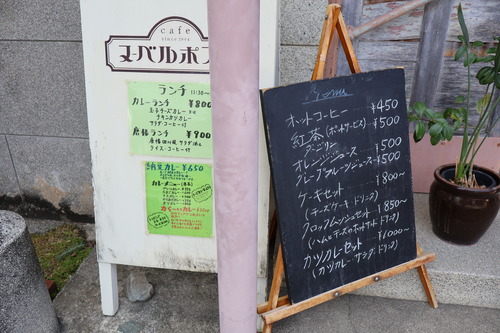 cafe
since 1994
ヌーベルポ
ランチ 11:30〜
カレーランチ ¥800
サラダ・コーヒー付
ランチ ¥900
アイス・コーヒー付
カレー ¥650
Menu
ホットコーヒー ¥450
紅茶(ポットサービス) ¥500
ダージリン
オレンジジュース ¥500
グレープフルーツジュース ¥500
ケーキセット ¥800〜
(チーズケーキ ドリンク)
クロックムッシュセット ¥850〜
(ハムとチーズのホットサンド ドリンク)
カツカレーセット ¥1000〜
(カツカレー・サラダ・ドリンク)